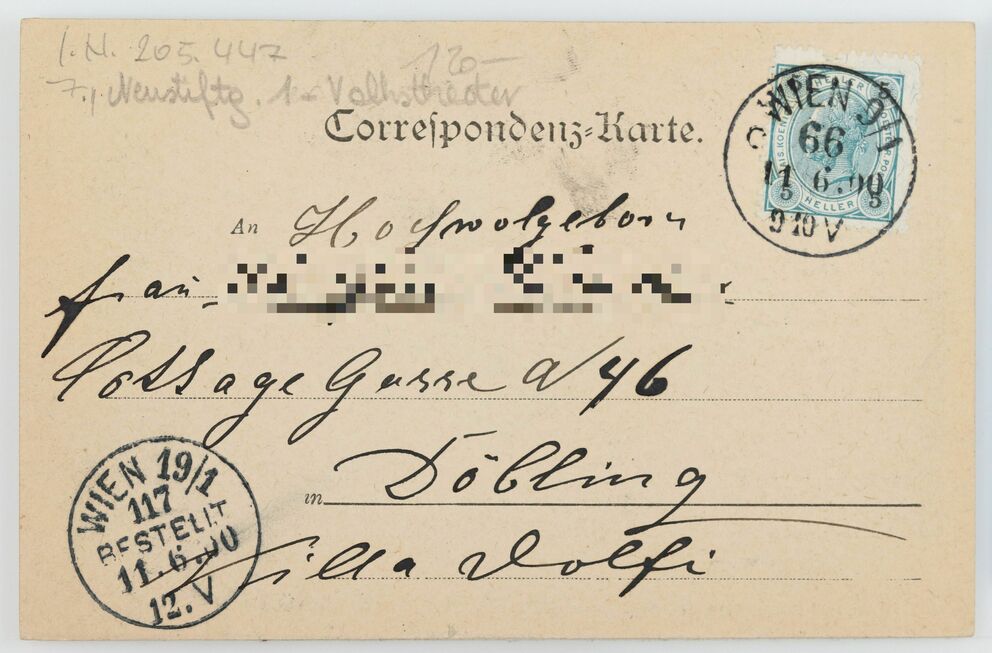 I.N. 205.447
120-
7., Neustiftg. 1 - Volkstheater
Correspondenz-Karte.
WIEN 9/1
66
11.6.00
9 10 V
5 HELLER 5
An Hochwolgeborn
frau
Cottage Gasse N 46
in Döbling
Villa Dolfi
WIEN 19/1
117
BESTELLT
11.6.00
12.V